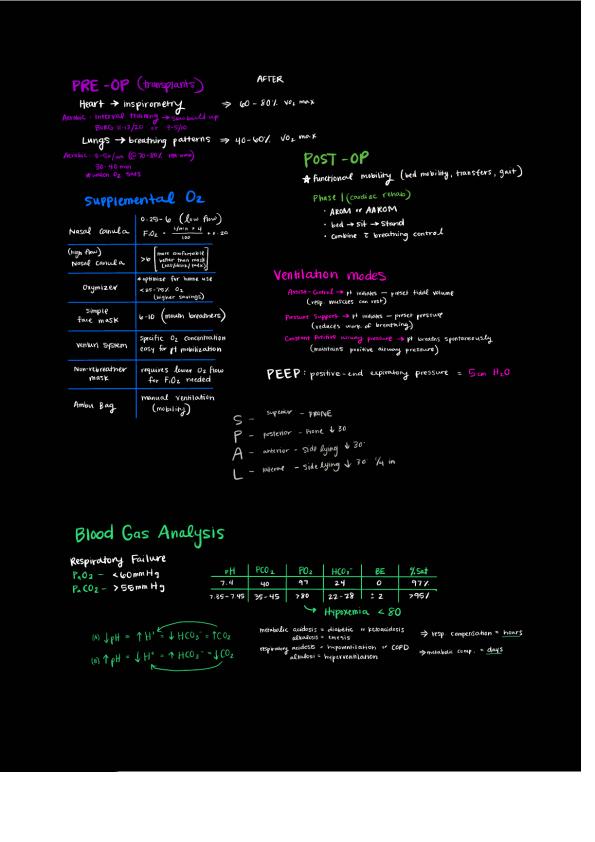 PRE-OP (transplants)
AFTER
Heart → inspirometry ⇒ 60-80% VO₂ max
Aerobic - interval training → build up
BORG 11-13/20 or 3-5/10
Lungs → breathing patterns ⇒ 40-60% VO₂ max
Aerobic
30-40 min
O₂ sats
POST-OP
★ Functional mobility (bed mobility, transfers, gait)
Phase 1 (cardiac rehab)
• AROM or AAROM
• bed → sit → stand
• combine c̄ breathing control
Supplemental O₂
Nasal canula
0.25-6 (low flow)
FiO₂ = l/min × 4 / 100 + 0.20
(high flow)
Nasal canula
>6 [more comfortable
better than mask
Oxymizer
* optimize for home use
<25-75% O₂
(higher savings)
Simple
face mask
6-10 (mouth breathers)
Venturi System
specific O₂ concentration
easy for pt mobilization
Non-rebreather
mask
requires lower O₂ flow
for FiO₂ needed
Ambu Bag
manual ventilation
(mobility)
Ventilation modes
Assist-Control → pt initiates — preset tidal volume
(resp. muscles can rest)
Pressure Support → pt initiates — preset pressure
(reduces work of breathing)
Constant Positive airway pressure → pt breaths spontaneously
(maintains positive airway pressure)
PEEP: positive-end expiratory pressure = 5cm H₂O
S - superior - PRONE
P - posterior - Prone ↓ 30
A - anterior - Side lying ↓ 30°
L - - Sidelying ↓ 30° 1/4 in
Blood Gas Analysis
Respiratory Failure
PaO₂ - <60mmHg
PaCO₂ - >55mmHg
pH PCO₂ PO₂ HCO₃⁻ BE %Sat
7.4 40 97 24 0 97%
7.35-7.45 35-45 >80 22-28 ±2 >95%
↳ Hypoxemia < 80
(A) ↓pH = ↑H⁺ = ↓HCO₃⁻ = ↑CO₂
(B) ↑pH = ↓H⁺ = ↑HCO₃⁻ = ↓CO₂
metabolic acidosis = diabetic or ketoacidosis
alkalosis = emesis
⇒ resp compensation = hours
respiratory acidosis = hypoventilation or COPD
alkalosis = hyperventilation
⇒ metabolic comp. = days